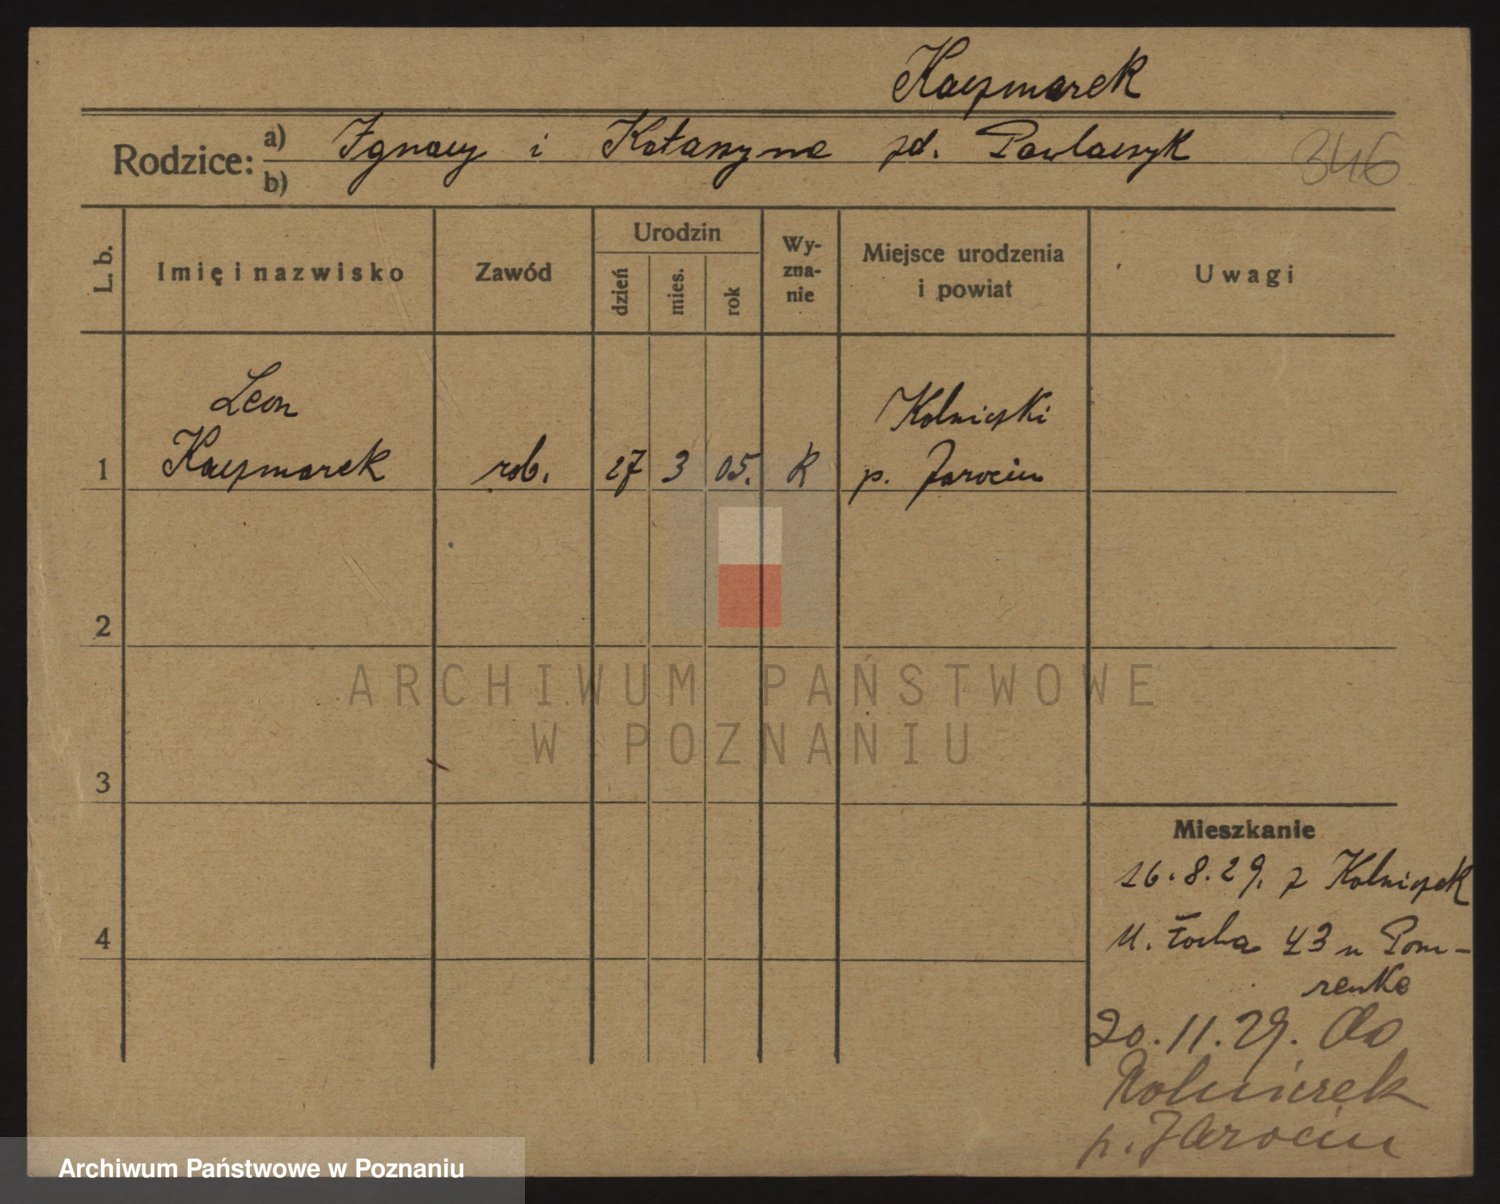 Kaczmarek
Rodzice: a) Ignacy i Katarzyna zd. Pawlaczyk
b)
346
L. b.
Imię i nazwisko
Zawód
Urodzin
dzień
mies.
rok
Wy-
zna-
nie
Miejsce urodzenia
i powiat
Uwagi
Leon
Kolniczki
1 Kaczmarek rob. 27 3 05. K p. Jarocin
2
3
4
Mieszkanie
26.8.29. z Kolniczek
43 u Pom-
renke
20.11.29. do
Kolniczek
p. Jarocin
ARCHIWUM PAŃSTWOWE
W POZNANIU
Archiwum Państwowe w Poznaniu